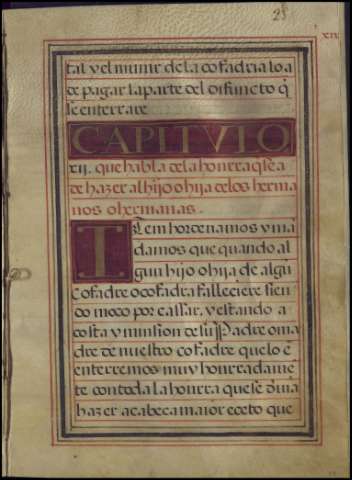 23
xix
tal y el munir de la cofadria lo a
de pagar la parte del difuncto q̃
se enterrare
CAPITVLO
xii. que habla de la honrra q̃ se a
de hazer al hijo o hija de los herma
nos o hermanas.
Item hordenamos y ma
damos que quando al
gun hijo o hija de algũ
cofadre o cofadra falleciere sien
do moco por cassar, y estando a
costa y minsion de su Padre o ma
dre de nuestro cofadre que lo ẽ
enterremos muy honrradamẽ
te con toda la honrra que se deuia
hazer a cabeca maior eceto que